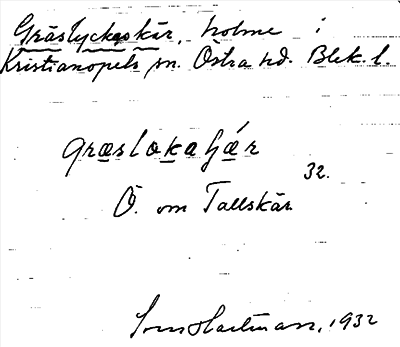 Gräslyckeskär, holme i
Kristianopels sn. Östra hd. Blek. l.
32.
Ö. om Tallskär
Hartman, 1932